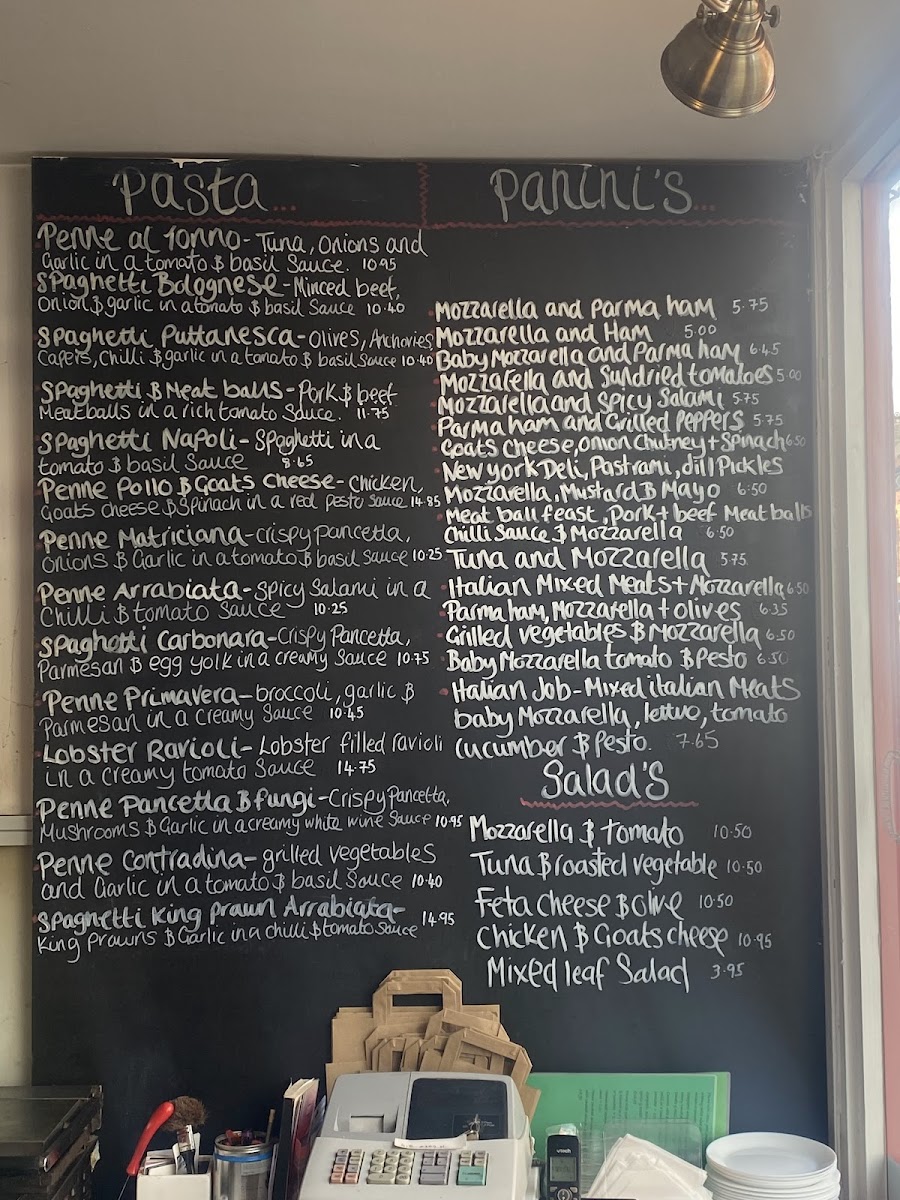 Pasta...
Penne al Tonno - Tuna, Onions and
Garlic in a tomato & basil Sauce. 10.95
Spaghetti Bolognese - Minced beef,
Onion & garlic in a tomato & basil Sauce 10.40
Spaghetti Puttanesca - Olives, Anchovies
Capers, Chilli & garlic in a tomato & basil Sauce 10.40
Spaghetti & Meat balls - Pork & beef
Meatballs in a rich tomato Sauce. 11.75
Spaghetti Napoli - Spaghetti in a
tomato & basil Sauce 8.65
Penne Pollo & Goats Cheese - Chicken,
Goats cheese & Spinach in a red pesto Sauce 14.85
Penne Matriciana - crispy pancetta,
Onions & Garlic in a tomato & basil Sauce 10.25
Penne Arrabiata - Spicy Salami in a
Chilli & tomato Sauce 10.25
Spaghetti Carbonara - Crispy Pancetta,
Parmesan & egg yolk in a creamy Sauce 10.75
Penne Primavera - broccoli, garlic &
Parmesan in a creamy Sauce 10.45
Lobster Ravioli - Lobster filled ravioli
in a creamy tomato Sauce 14.75
Penne Pancetta & fungi - Crispy Pancetta,
Mushrooms & Garlic in a creamy white wine Sauce 10.95
Penne Contradina - grilled vegetables
and Garlic in a tomato & basil Sauce 10.40
Spaghetti King Prawn Arrabiata - 14.95
King Prawns & Garlic in a chilli & tomato Sauce
Panini's...
Mozzarella and Parma ham 5.75
Mozzarella and Ham 5.00
Baby Mozzarella and Parma ham 6.45
Mozzarella and Sundried tomatoes 5.00
Mozzarella and Spicy Salami 5.75
Parma ham and Grilled Peppers 5.75
Goats Cheese, Onion Chutney + Spinach 6.50
New York Deli, Pastrami, dill Pickles
Mozzarella, Mustard & Mayo 6.50
Meat ball feast, Pork + beef Meat balls
Chilli Sauce & Mozzarella 6.50
Tuna and Mozzarella 5.75
Italian Mixed Meats + Mozzarella 6.50
Parma ham, Mozzarella + olives 6.35
Grilled vegetables & Mozzarella 6.50
Baby Mozzarella tomato & Pesto 6.50
Italian Job - Mixed italian Meats
baby Mozzarella, lettuo, tomato
cucumber & Pesto. 7.65
Salad's
Mozzarella & tomato 10.50
Tuna & roasted vegetable 10.50
Feta cheese & olive 10.50
Chicken & Goats cheese 10.95
Mixed leaf Salad 3.95
vtech